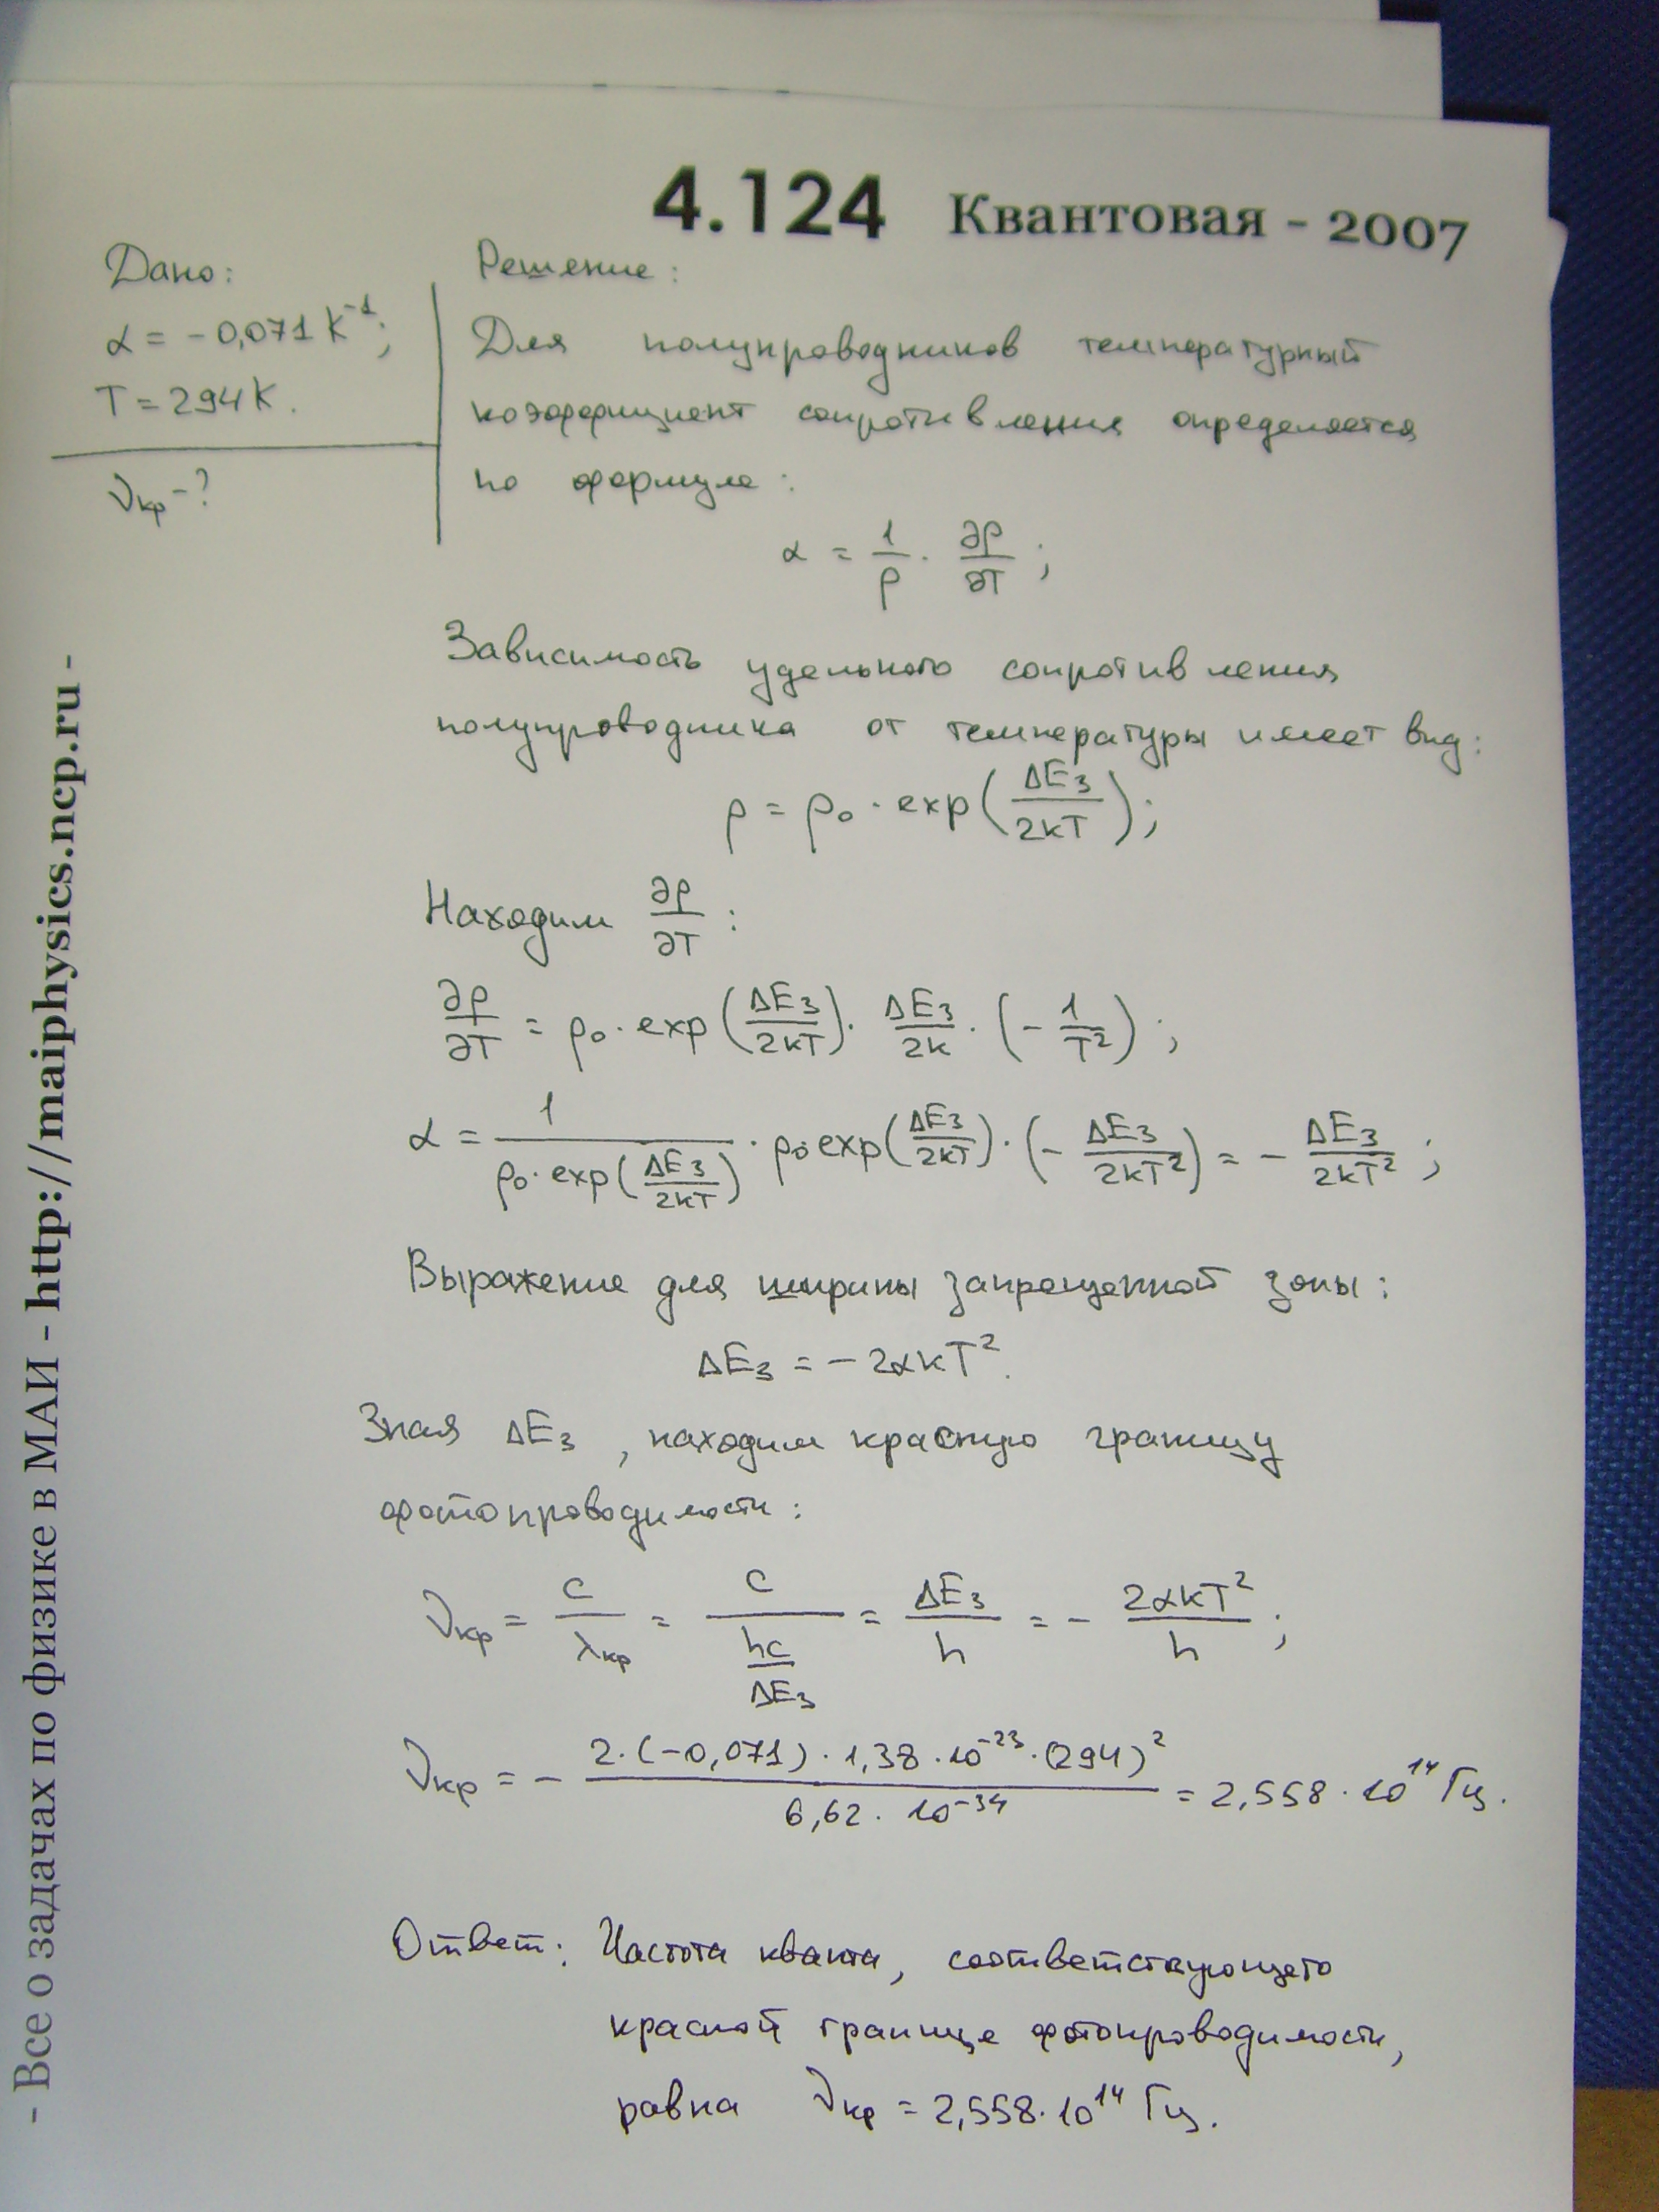 4.124 Квантовая - 2007
Дано:
α = -0,071 К⁻¹;
T = 294 К.
νкр - ?
Решение:
Для полупроводников температурный
коэффициент сопротивления определяется
по формуле:
α = 1/ρ · ∂ρ/∂T ;
Зависимость удельного сопротивления
полупроводника от температуры имеет вид:
ρ = ρ₀ · exp(ΔEз/2kT);
Находим ∂ρ/∂T :
∂ρ/∂T = ρ₀ · exp(ΔEз/2kT) · ΔEз/2k · (- 1/T²) ;
α = 1/(ρ₀ · exp(ΔEз/2kT)) · ρ₀ exp(ΔEз/2kT) · (- ΔEз/2kT²) = - ΔEз/2kT² ;
Выражение для ширины запрещенной зоны :
ΔEз = - 2αkT².
Зная ΔEз , находим красную границу
фотопроводимости :
νкр = c/λкр = c/(hc/ΔEз) = ΔEз/h = - 2αkT²/h ;
νкр = - 2·(-0,071) · 1,38 · 10⁻²³ · (294)² / 6,62 · 10⁻³⁴ = 2,558 · 10¹⁴ Гц.
Ответ: Частота кванта, соответствующего
красной границе фотопроводимости,
равна νкр = 2,558 · 10¹⁴ Гц.
- Все о задачах по физике в МАИ - http://maiphysics.ncp.ru -